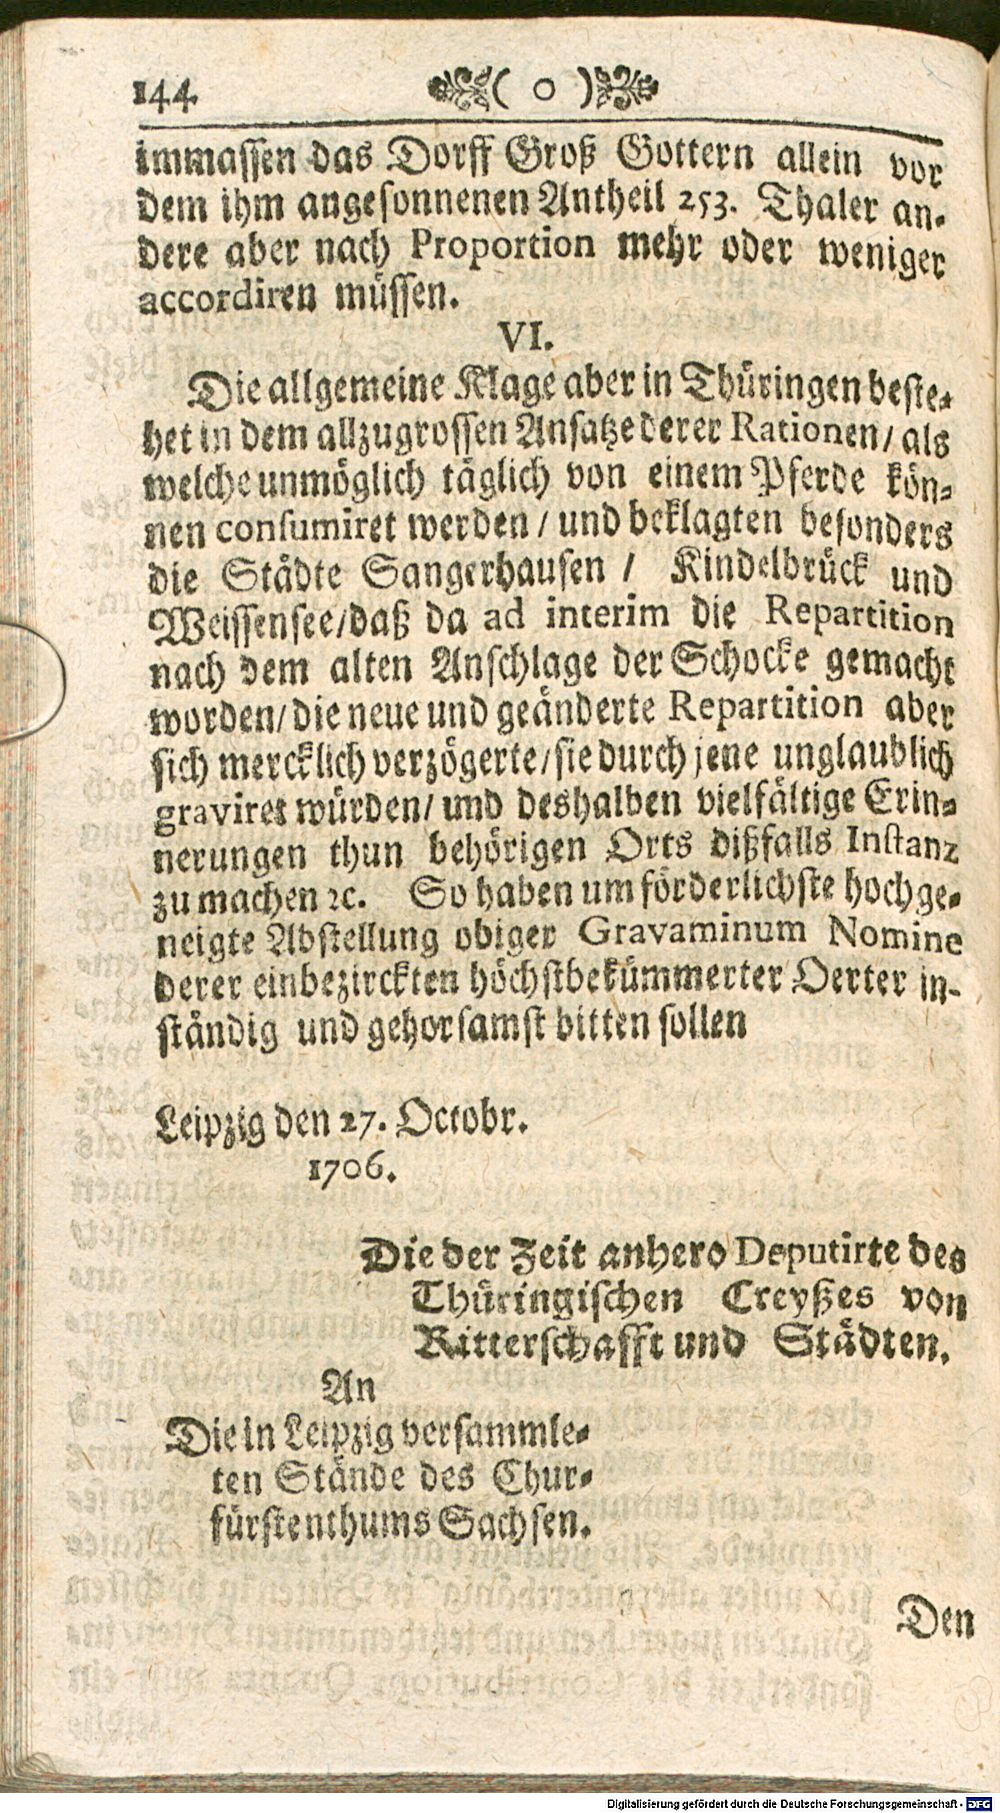 144. ( o )
immassen das Dorff Groß Gottern allein vor
dem ihm angesonnenen Antheil 253. Thaler an-
dere aber nach Proportion mehr oder weniger
accordiren müssen.
VI.
Die allgemeine Klage aber in Thüringen beste-
het in dem allzugrossen Ansatze derer Rationen/ als
welche unmöglich täglich von einem Pferde kön-
nen consumiret werden / und beklagten besonders
die Städte Sangerhausen / Kindelbrück und
Weissensee/daß da ad interim die Repartition
nach dem alten Anschlage der Schocke gemacht
worden/ die neue und geänderte Repartition aber
sich mercklich verzögerte/sie durch jene unglaublich
graviret würden/ und deshalben vielfältige Erin-
nerungen thun behörigen Orts dißfalls Instanz
zu machen ꝛc. So haben um förderlichste hochge-
neigte Abstellung obiger Gravaminum Nomine
derer einbezirckten höchstbekümmerter Oerter in-
ständig und gehorsamst bitten sollen
Leipzig den 27. Octobr.
1706.
Die der Zeit anhero Deputirte des
Thüringischen Creyßes von
Ritterschafft und Städten.
An
Die in Leipzig versammle-
ten Stände des Chur-
fürstenthums Sachsen.
Den
Digitalisierung gefördert durch die Deutsche Forschungsgemeinschaft - DFG